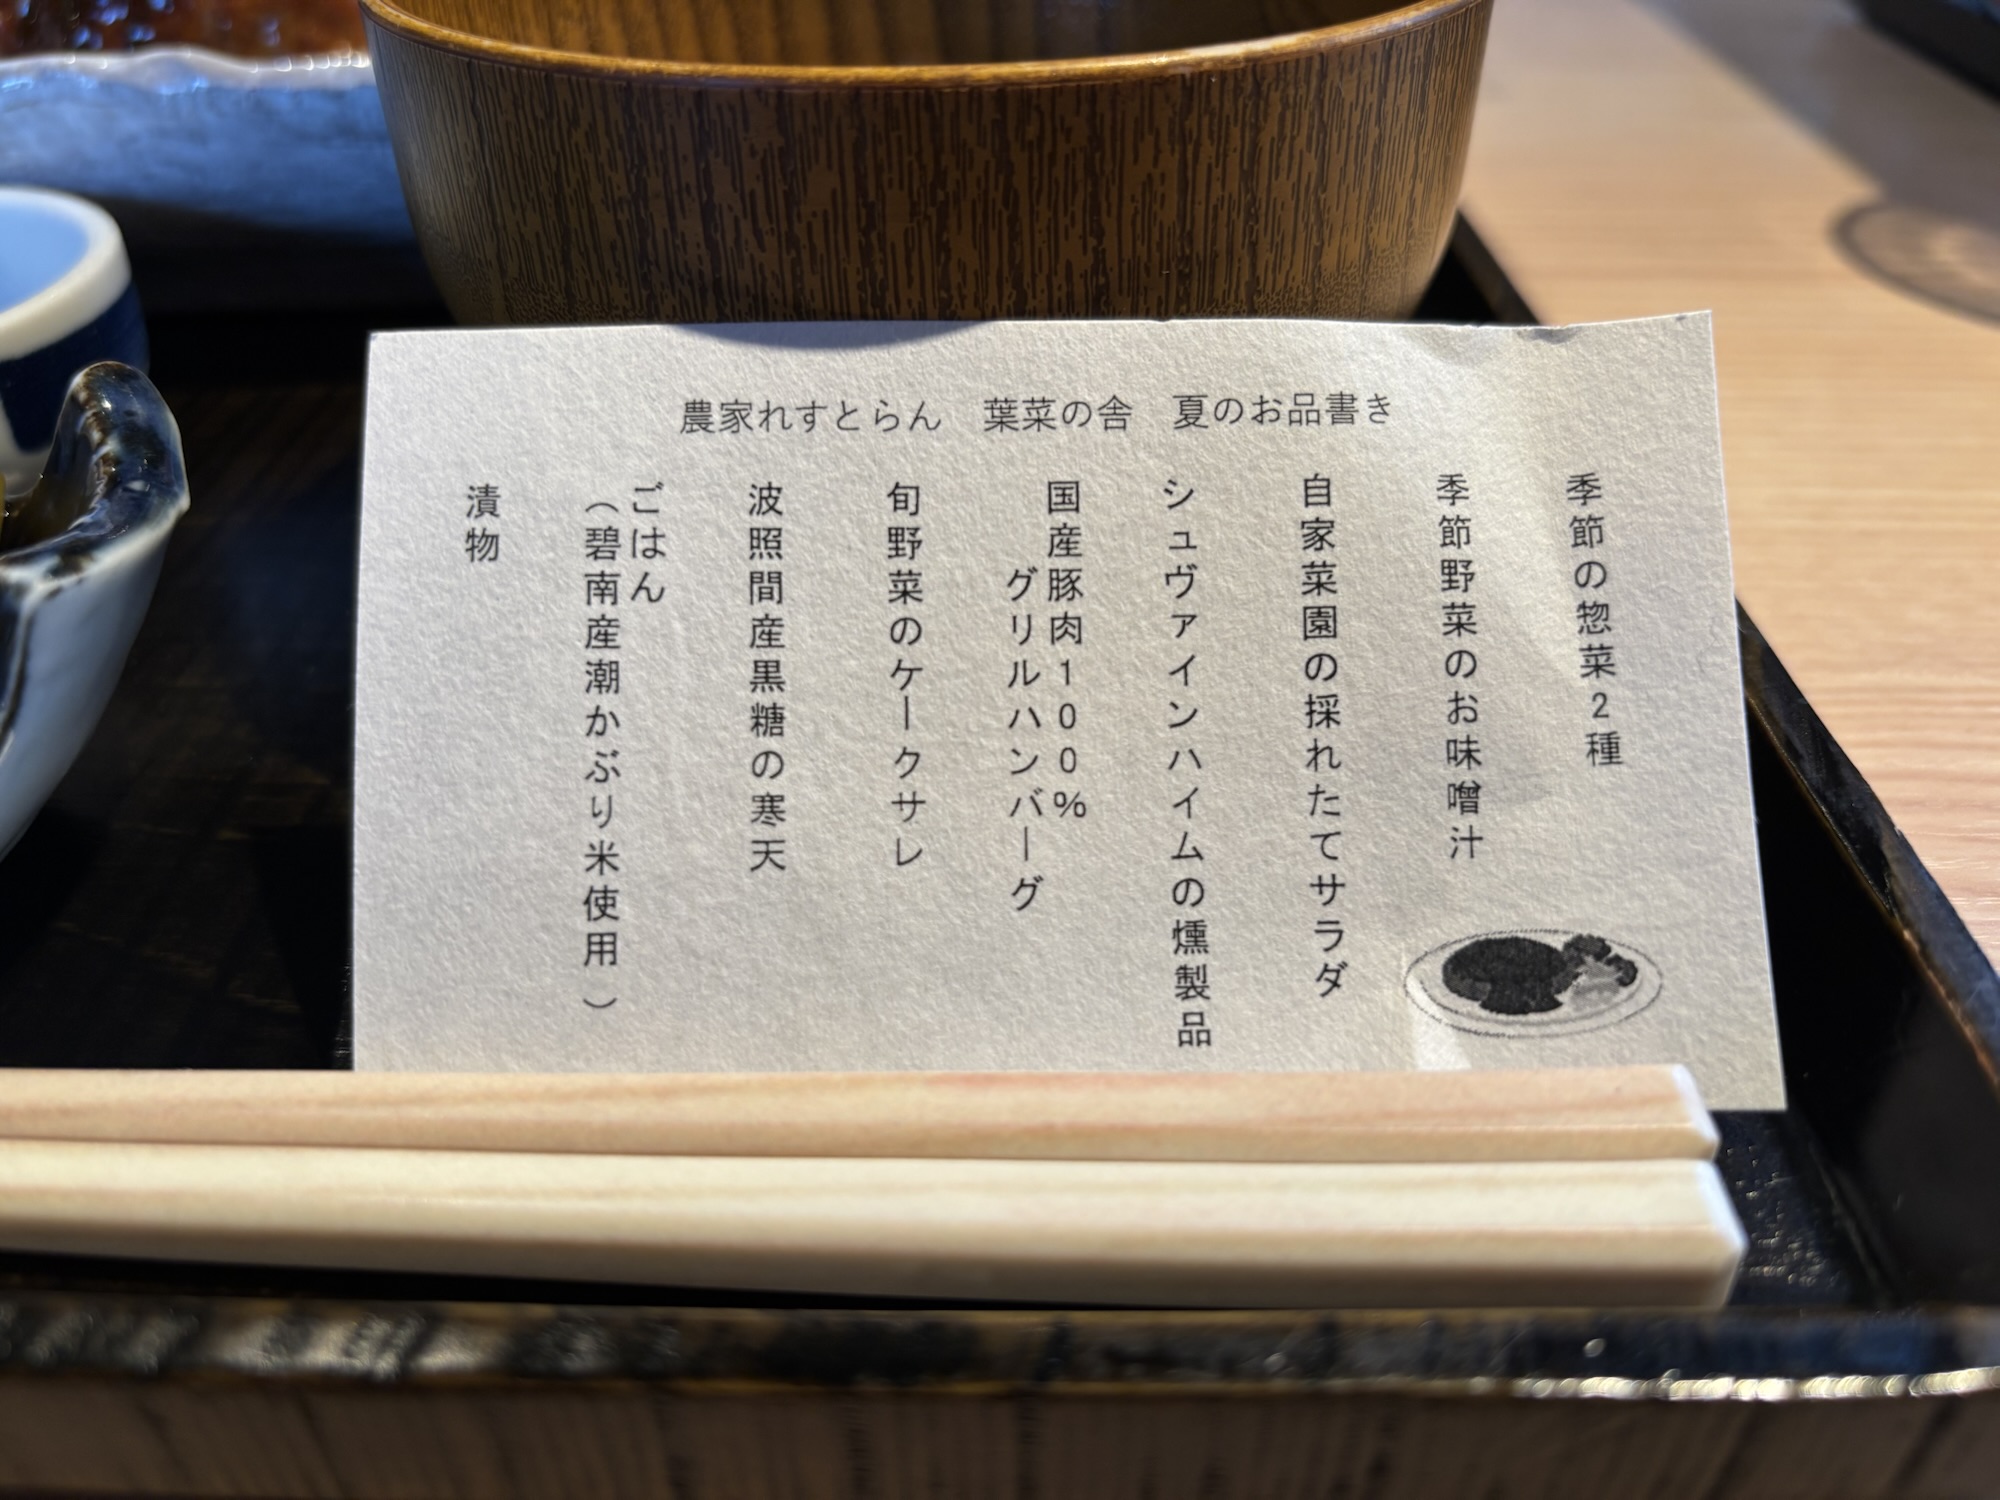 農家れすとらん　葉菜の舎　夏のお品書き
季節の惣菜2種
季節野菜のお味噌汁
自家菜園の採れたてサラダ
シュヴァインハイムの燻製品
国産豚肉100%
グリルハンバーグ
旬野菜のケークサレ
波照間産黒糖の寒天
ごはん
（碧南産潮かぶり米使用）
漬物